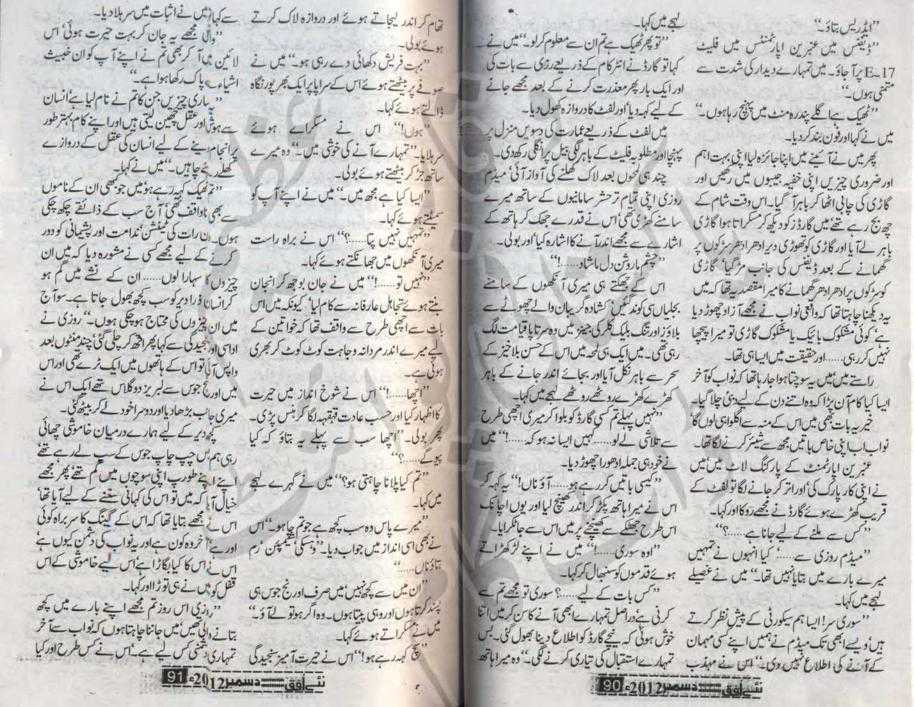 "ایڈریس بتاؤ۔"
"ڈیفنس میں عنبرین اپارٹمنٹس میں فلیٹ
E-17 پر آجاؤ۔ میں تمہارے دیدار کی شدت سے
منتظر ہوں۔"
"ٹھیک ہے اگلے پندرہ منٹ میں پہنچ رہا ہوں۔"
میں نے کہا اور فون بند کر دیا۔
پھر میں نے آئینے میں اپنا جائزہ لیا اپنی بہت اہم
اور ضروری چیزیں اپنی خفیہ جیبوں میں رکھیں اور
گاڑی کی چابی اٹھا کر باہر آگیا۔ اس وقت شام کے
چھ بج رہے تھے میں گارڈز کو دیکھ کر مسکراتا ہوا گاڑی
باہر لے آیا اور گاڑی کو تھوڑی دیر ادھر ادھر سڑکوں پر
گھمانے کے بعد ڈیفنس کی جانب مڑ گیا۔ گاڑی
کو سڑکوں پر ادھر ادھر گھمانے کا میرا مقصد یہ تھا کہ میں
یہ دیکھنا چاہتا تھا کہ واقعی نواب نے مجھے آزاد چھوڑ دیا
ہے' کوئی مشکوک بائیک یا مشکوک گاڑی تو میرا پیچھا
نہیں کر رہی.....اور حقیقت میں ایسا ہی تھا۔
راستے میں میں یہ سوچتا ہوا جا رہا تھا کہ نواب کو آخر
ایسا کیا کام آن پڑا کہ وہ اتنے دن کے لیے دبئی چلا گیا۔
خیر یہ بات بھی میں اس کے منہ سے اگلوا ہی لوں گا
نواب اب اپنی خاص باتیں مجھ سے شیئر کرنے لگا تھا۔
عنبرین اپارٹمنٹ کے پارکنگ لاٹ میں میں
نے اپنی کار پارک کی اور اتر کر جانے لگا تو لفٹ کے
قریب کھڑے ہوئے گارڈ نے مجھے روکا اور کہا۔
"کس سے ملنے کے لیے جانا ہے.....؟"
"میڈم روزی سے.....' کیا انہوں نے تمہیں
میرے بارے میں بتایا نہیں تھا۔" میں نے غصیلے
لہجے میں کہا۔
"سوری سر! ایسا ہم سیکورٹی کے پیش نظر کرتے
ہیں ویسے ابھی تک میڈم نے ہمیں اپنے کسی مہمان
کے آنے کی اطلاع نہیں دی۔" اس نے مہذب
لہجے میں کہا۔
"تو پھر ٹھیک ہے تم ان سے معلوم کرلو۔" میں نے
کہا تو گارڈ نے انٹرکام کے ذریعے روزی سے بات کی
اور ایک بار پھر معذرت کرنے کے بعد مجھے جانے
کے لیے کہہ دیا اور لفٹ کا دروازہ کھول دیا۔
میں لفٹ کے ذریعے عمارت کی دسویں منزل پر
پہنچا اور مطلوبہ فلیٹ کے باہر لگی بیل پر انگلی رکھ دی۔
چند ہی لمحوں بعد لاک کھلنے کی آواز آئی' میڈم
روزی اپنی تمام تر حشر سامانیوں کے ساتھ میرے
سامنے کھڑی تھی اس نے قدرے جھک کر ہاتھ کے
اشارے سے مجھے اندر آنے کا اشارہ کیا اور بولی۔
"چشم ما روشن دل ماشاد.....!"
اس کے جھکتے ہی میری آنکھوں کے سامنے
بجلیاں سی کوندیں' کشادہ گریبان والے چھوٹے سے
بلاؤز اور تنگ بلیک کلر کی جینز میں وہ سرتاپا قیامت لگ
رہی تھی۔ میں ایک ہی لمحہ میں اس کے حسن بلاخیز کے
سحر سے باہر نکل آیا اور بجائے اندر جانے کے باہر
کھڑے کھڑے روٹھے روٹھے لہجے میں کہا۔
"نہیں پہلے تم گارڈ کو بلوا کر میری اچھی طرح
سے تلاشی لے لو.....کہیں ایسا نہ ہو کہ.....!" میں
نے خود ہی جملہ ادھورا چھوڑ دیا۔
"کیسی باتیں کر رہے ہو.....آؤ ناں!" یہ کہہ کر
اس نے میرا ہاتھ پکڑ کر اندر کھینچ لیا اور یوں اچانک
اس طرح جھٹکے سے کھینچنے پر میں اس سے جا ٹکرایا۔
"اوہ سوری.....!" میں نے اپنے لڑکھڑاتے
ہوئے قدموں کو سنبھال کر کہا۔
"کس بات کے لیے.....؟ سوری تو مجھے تم سے
کرنی ہے دراصل تمہارے ابھی آنے کا سن کر میں اتنا
خوش ہوئی کہ نیچے گارڈ کو اطلاع دینا بھول گئی۔ بس
تمہارے استقبال کی تیاری کرنے لگی۔" وہ میرا ہاتھ
نئے افق 90 دسمبر 2012ء
تھام کر اندر لیجاتے ہوئے اور دروازہ لاک کرتے
ہوئے بولی۔
"بہت فریش دکھائی دے رہی ہو۔" میں نے
صوفے پر بیٹھتے ہوئے اس کے سراپا پر ایک بھرپور نگاہ
ڈالتے ہوئے کہا۔
"ہوں!" اس نے مسکراتے ہوئے
سر ہلایا۔ "تمہارے آنے کی خوشی میں۔" وہ میرے
ساتھ جڑ کر بیٹھتے ہوئے بولی۔
"ایسا کیا ہے مجھ میں۔" میں نے اپنے آپ کو
سمیٹتے ہوئے کہا۔
"تمہیں نہیں پتا.....؟" اس نے براہ راست
میری آنکھوں میں جھانکتے ہوئے کہا۔
"نہیں تو.....!" میں نے جان بوجھ کر انجان
بنتے ہوئے تجاہل عارفانہ سے کام لیا' کیونکہ میں اس
بات سے اچھی طرح سے واقف تھا کہ خواتین کے
لیے میرے اندر مردانہ وجاہت کوٹ کوٹ کر بھری
ہوئی ہے۔
"اچھا.....!" اس نے شوخ انداز میں حیرت
کا اظہار کیا اور حسب عادت قہقہہ لگا کر ہنس پڑی۔
پھر بولی۔ "اچھا سب سے پہلے یہ بتاؤ کہ کیا
پیو گے.....؟"
"تم کیا پلانا چاہتی ہو؟" میں نے گہرے لہجے
میں کہا۔
"میرے پاس وہ سب کچھ ہے جو تم چاہو۔" اس
نے بھی اسی انداز میں جواب دیا۔ "وسکی' شیمپئن' رم
بتاؤ ناں.....
"ان میں سے کچھ نہیں میں صرف اورنج جوس ہی
پسند کرتا ہوں اور وہی پیتا ہوں۔ وہ اگر ہو تو لے آؤ۔"
میں نے مسکراتے ہوئے کہا۔
"سچ کہہ رہے ہو!" اس نے حیرت آمیز سنجیدگی
سے کہا میں نے اثبات میں سر ہلا دیا۔
"واقعی مجھے یہ جان کر بہت حیرت ہوئی' اس
لائین میں آکر بھی تم نے اپنے آپ کو ان خبیث
اشیاء سے پاک رکھا ہوا ہے۔"
"یہ ساری چیزیں جن کا تم نے نام لیا ہے' انسان
سے ہوش اور عقل چھین لیتی ہیں اور اپنے کام بہتر طور
پر انجام دینے کے لیے انسان کی عقل کے دروازے
کھلے رہنے چاہئیں۔" میں نے کہا۔
"تم ٹھیک کہہ رہے ہو میں جو کبھی ان کے ناموں
سے بھی ناواقف تھی آج سب کے ذائقے چکھ چکی
ہوں۔ دن رات کی ٹینشن' ندامت اور پشیمانی کو دور
کرنے کے لیے مجھے کسی نے مشورہ دیا کہ میں ان
چیزوں کا سہارا لوں.....ان کے نشے میں گم ہو
کر انسان ذرا دیر کو سب کچھ بھول جاتا ہے۔ سو آج
میں ان چیزوں کی محتاج ہو چکی ہوں۔" روزی نے
اداسی اور سنجیدگی سے کہا پھر اٹھ کر چلی گئی چند منٹوں بعد
واپس آئی تو اس کے ہاتھوں میں ایک ٹرے تھی اور اس
میں اورنج جوس سے لبریز دو گلاس تھے ایک اس نے
میری جانب بڑھا دیا اور دوسرا خود لے کر بیٹھ گئی۔
کچھ دیر کے لیے ہمارے درمیان خاموشی چھائی
رہی ہم بس چپ چاپ جوس کے سپ لے رہے تھے
اپنے اپنے طور پر اپنی سوچوں میں گم تھے پھر مجھے
خیال آیا کہ میں تو اس کی کہانی سننے کے لیے آیا تھا'
اس نے مجھے بتایا تھا کہ اس کے گینگ کا سربراہ کوئی
اور ہے' آخر وہ کون ہے اور یہ نواب کی دشمن کیوں ہے'
اس نے اس کا کیا بگاڑا ہے اس لیے خاموشی کے اس
قفل کو میں نے ہی توڑا اور کہا۔
"روزی! اس روز تم مجھے اپنے بارے میں کچھ
بتانے والی تھیں' میں جاننا چاہتا ہوں کہ نواب سے آخر
تمہاری دشمنی کس لیے ہے' اس نے کس طرح اور کیا
نئے افق 91 دسمبر 2012ء